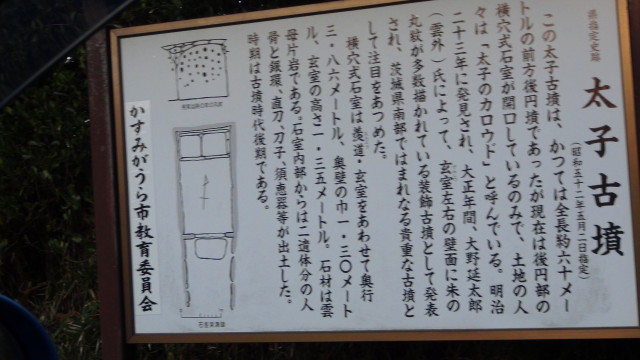 県指定史跡
太子古墳
（昭和五十二年五月二日指定）
この太子古墳は、かつては全長約六十メー
トルの前方後円墳であったが現在は後円部の
横穴式石室が開口しているのみで、土地の人
々は「太子のカロウド」と呼んでいる。明治
二十三年に発見され、大正年間、大野延太郎
（雲外）氏によって、玄室左右の壁面に朱の
丸紋が多数描かれている装飾古墳として発表
され、茨城県南部ではまれなる貴重な古墳と
して注目をあつめた。
横穴式石室は羨道・玄室をあわせて奥行
三・八六メートル、奥壁の巾一・三〇メート
ル、玄室の高さ一・三五メートル。石材は雲
母片岩である。石室内部からは二遺体分の人
骨と銀環、直刀、刀子、須恵器等が出土した。
時期は古墳時代後期である。
石室実測図
かすみがうら市教育委員会